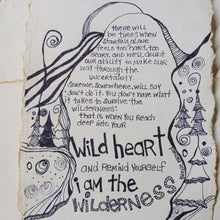 there will
be times when
standing alone
feels too hard, too
scary, and we'll doubt
our ability to make our
way through the
uncertainty.
Someone, somewhere, will say
don't do it. You don't have what
it takes to survive the
wilderness.
that is when you reach
deep into your
Wild heart
and remind yourself
i am the
WILDERNESS